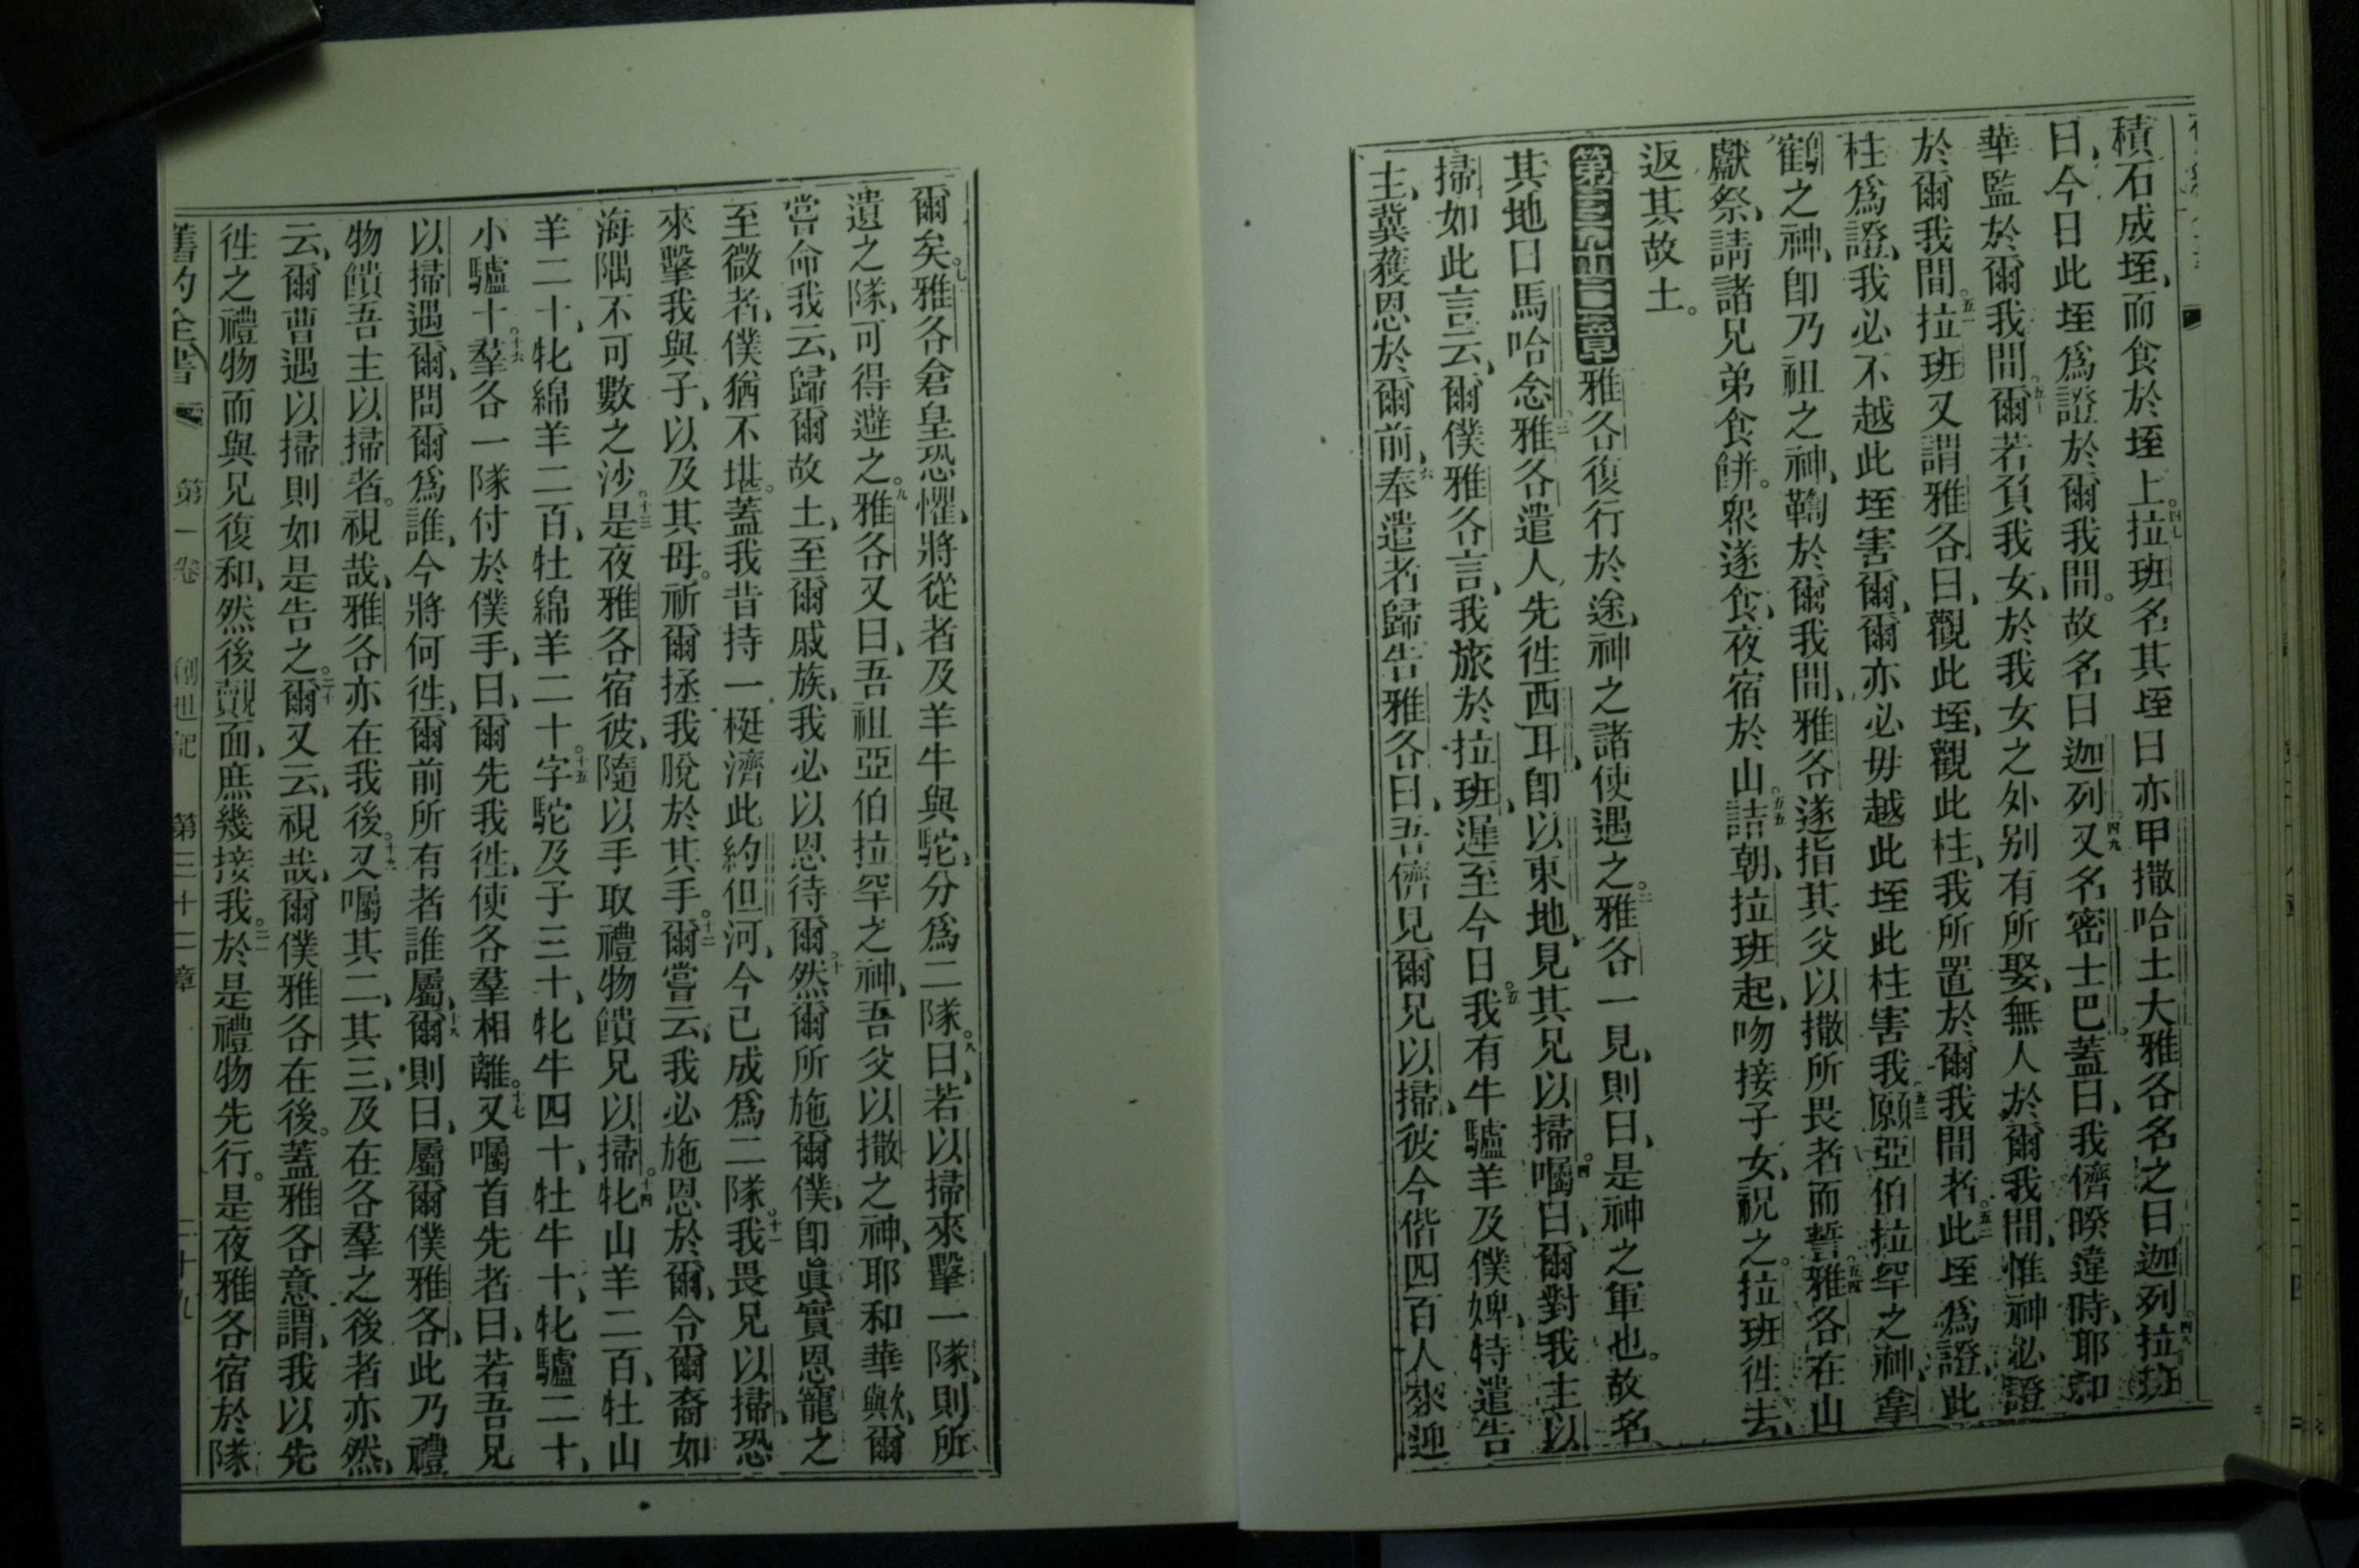 積石成垤、而食於垤上。四七拉班名其垤曰亦甲撒哈土大雅各名之曰迦列。四八拉班
曰、今日此垤爲證於爾我間。故名曰迦列。四九又名密士巴。蓋曰、我儕暌違時、耶和
華監於爾我間。五十爾若負我女、於我女之外别有所娶、無人於爾我間、惟神必證
於爾我間。五一拉班又謂雅各曰、觀此垤、觀此柱、我所置於爾我間者。五二此垤爲證、此
柱爲證、我必不越此垤害爾、爾亦必毋越此垤此柱害我。五三願亞伯拉罕之神、拿
鶴之神、卽乃祖之神、鞫於爾我間、雅各遂指其父以撒所畏者而誓。五四雅各在山
獻祭、請諸兄弟食餅。衆遂食、夜宿於山。五五詰朝、拉班起、吻接子女、祝之。拉班徃去、
返其故土。
第三十二章 雅各復行於途、神之諸使遇之。二雅各一見、則曰、是神之軍也。故名
其地曰馬哈念。三雅各遣人先徃西耳、卽以東地、見其兄以掃。四囑曰、爾對我主以
掃如此言云、爾僕雅各言、我旅於拉班、遲至今日。五我有牛驢羊及僕婢、特遣告
主、冀獲恩於爾前、六奉遣者歸告雅各曰、吾儕見爾兄以掃、彼今偕四百人來迎
爾矣。七雅各窘皇恐懼、將從者及羊牛與駝、分爲二隊。八曰、若以掃來擊一隊、則所
遺之隊、可得避之。九雅各又曰、吾祖亞伯拉罕之神、吾父以撒之神、耶和華歟、爾
嘗命我云、歸爾故土、至爾戚族、我必以恩待爾。十然爾所施爾僕、卽眞實恩寵之
至微者、僕猶不堪。蓋我昔持一梃濟此約但河、今已成爲二隊。十一我畏兄以掃、恐
來擊我與子、以及其母。祈爾拯我脫於其手。十二爾嘗云、我必施恩於爾、令爾裔如
海隅不可數之沙。十三是夜雅各宿彼、隨以手取禮物饋兄以掃。十四牝山羊二百、牡山
羊二十、牝綿羊二百、牡綿羊二十。十五字駝及子三十、牝牛四十、牡牛十、牝驢二十、
小驢十。十六羣各一隊付於僕手、曰、爾先我徃、使各羣相離。十七又囑首先者曰、若吾兄
以掃遇爾、問爾爲誰、今將何徃、爾前所有者誰屬、十八爾則曰、屬爾僕雅各、此乃禮
物饋吾主以掃者。視哉、雅各亦在我後。十九又囑其二、其三、及在各羣之後者亦然、
云、爾曹遇以掃則如是告之。二十爾又云、視哉、爾僕雅各在後。蓋雅各意謂、我以先
徃之禮物而與兄復和、然後覿面、庶幾接我。二一於是禮物先行。是夜雅各宿於隊
舊約全書 第一卷 創世記 第三十二章 二十九